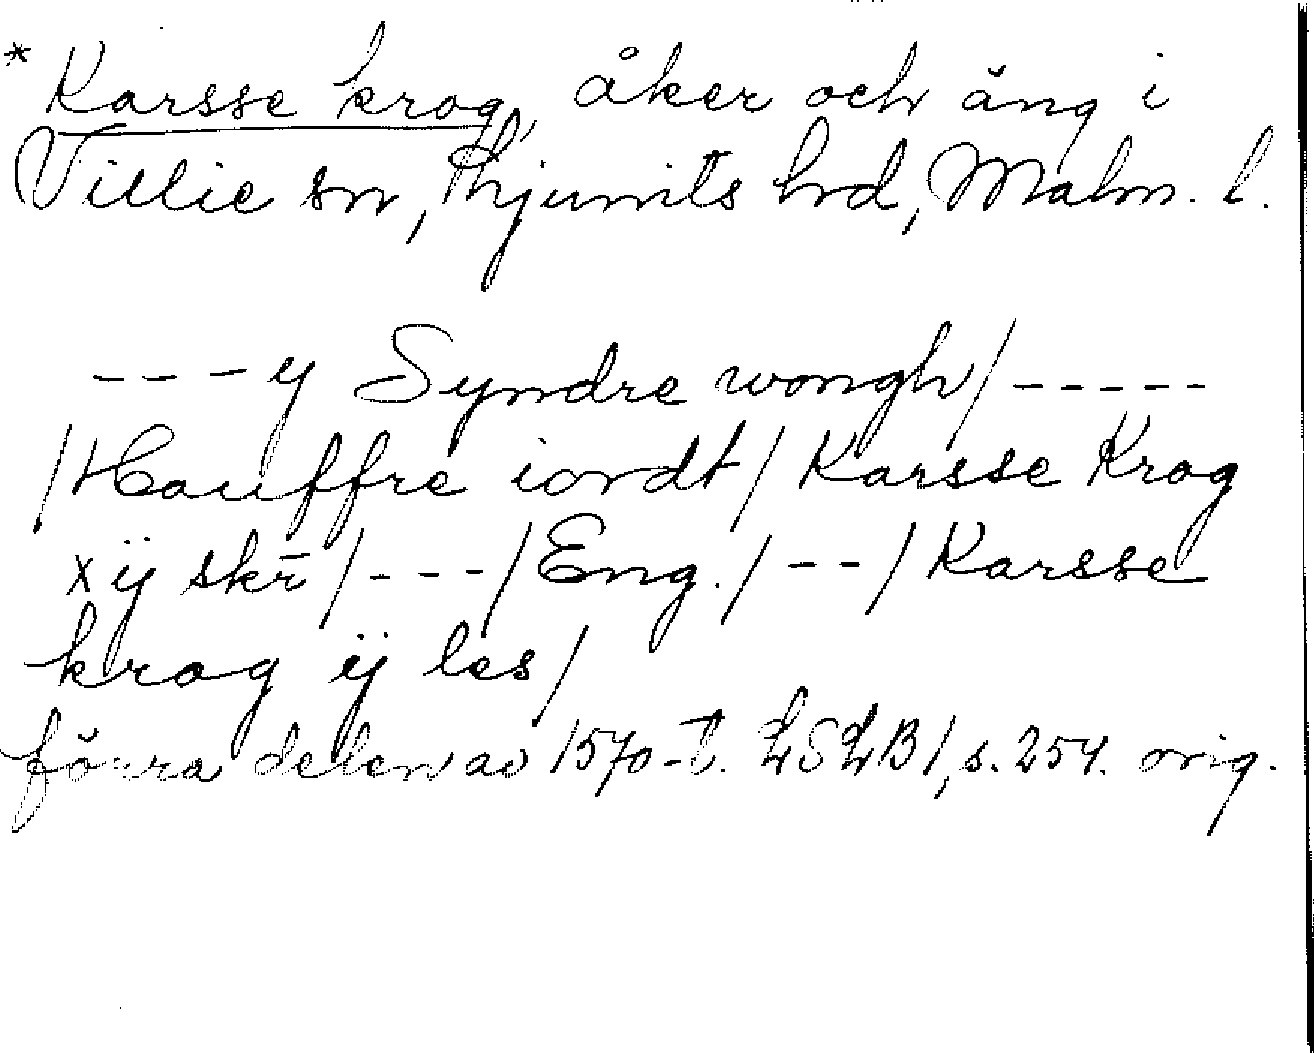 * Karsse krog, åker och äng i
Villie sn, Ljunits hrd, Malm. l.
---y Syndre wongh/-----
/Hauffre iordt/Karsse Krog
xÿ skr̄/---/Eng./--/Karsse
krog ÿ les/
förra delen av 1570-t. LSLB 1, s. 254. orig.